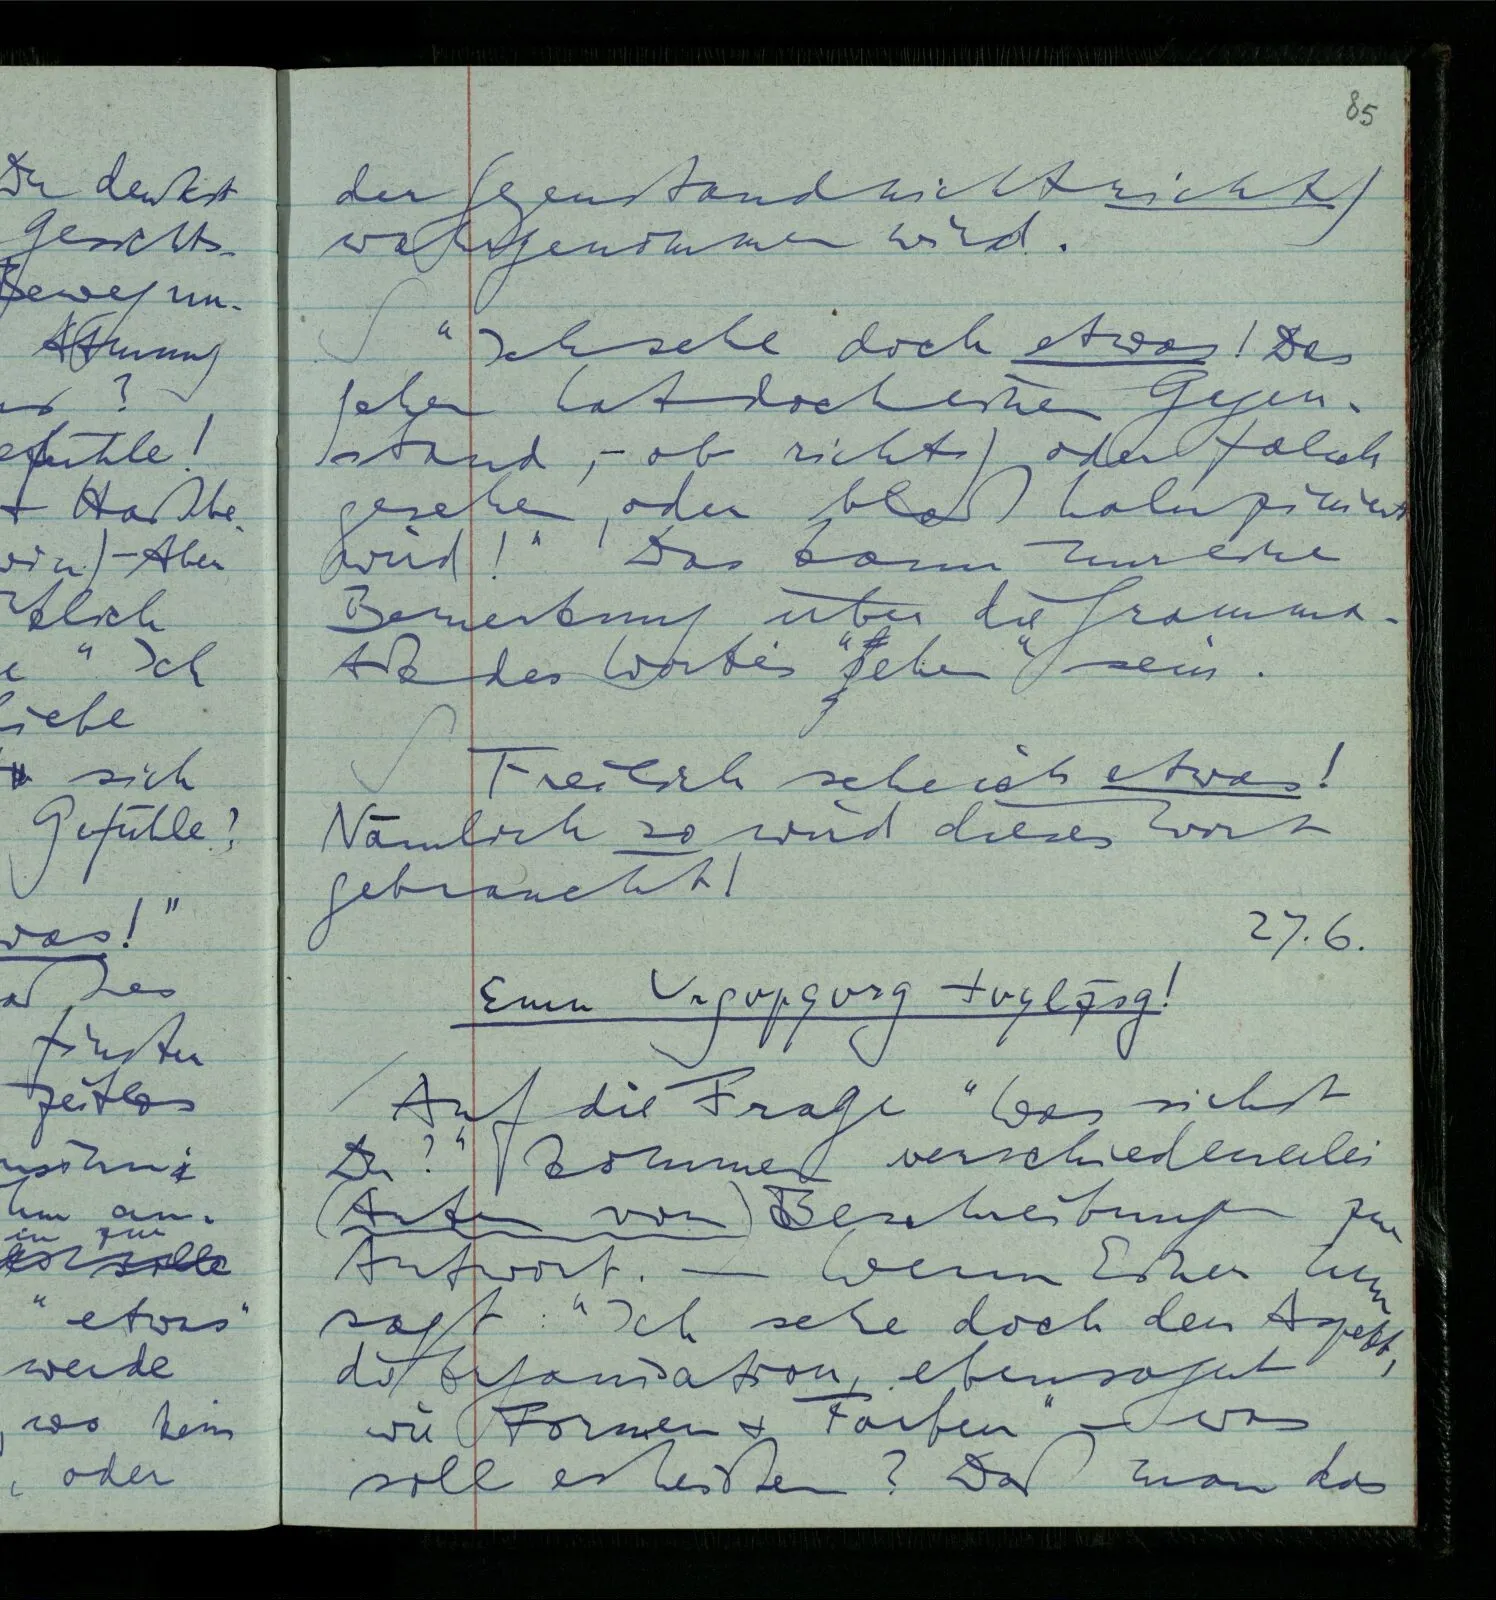 Du denkst
Gesichts-
Bewegun-
Atmung
?
efühle!
+ Haß be-
Aber
"Ich
liebe
sich
Gefühle?
was!"
finster
zeitlos
an-
in zur
solle
"etwas"
werde
, wo kein
, oder
85
der Gegenstand nicht richtig
wahrgenommen wird.
"Ich sehe doch etwas! Das
Sehen hat doch einen Gegen-
stand, – ob richtig oder falsch
gesehen, oder bloß haluziniert
wird!" Das kann nur eine
Bemerkung über die Gramma-
tik des Wortes "sehen" sein.
Freilich sehe ich etwas!
Nämlich so wird dieses Wort
gebraucht!
27.6.
Emn Vrgvpqvrg
Auf die Frage "Was siehst
Du?" kommen verschiedenerlei
(Arten von) Beschreibungen zur
Antwort. — Wenn Einer nun
sagt: "Ich sehe doch den Aspekt,
die Organisation, ebensogut
wie Formen & Farben" – was
soll es heißen? Daß man das